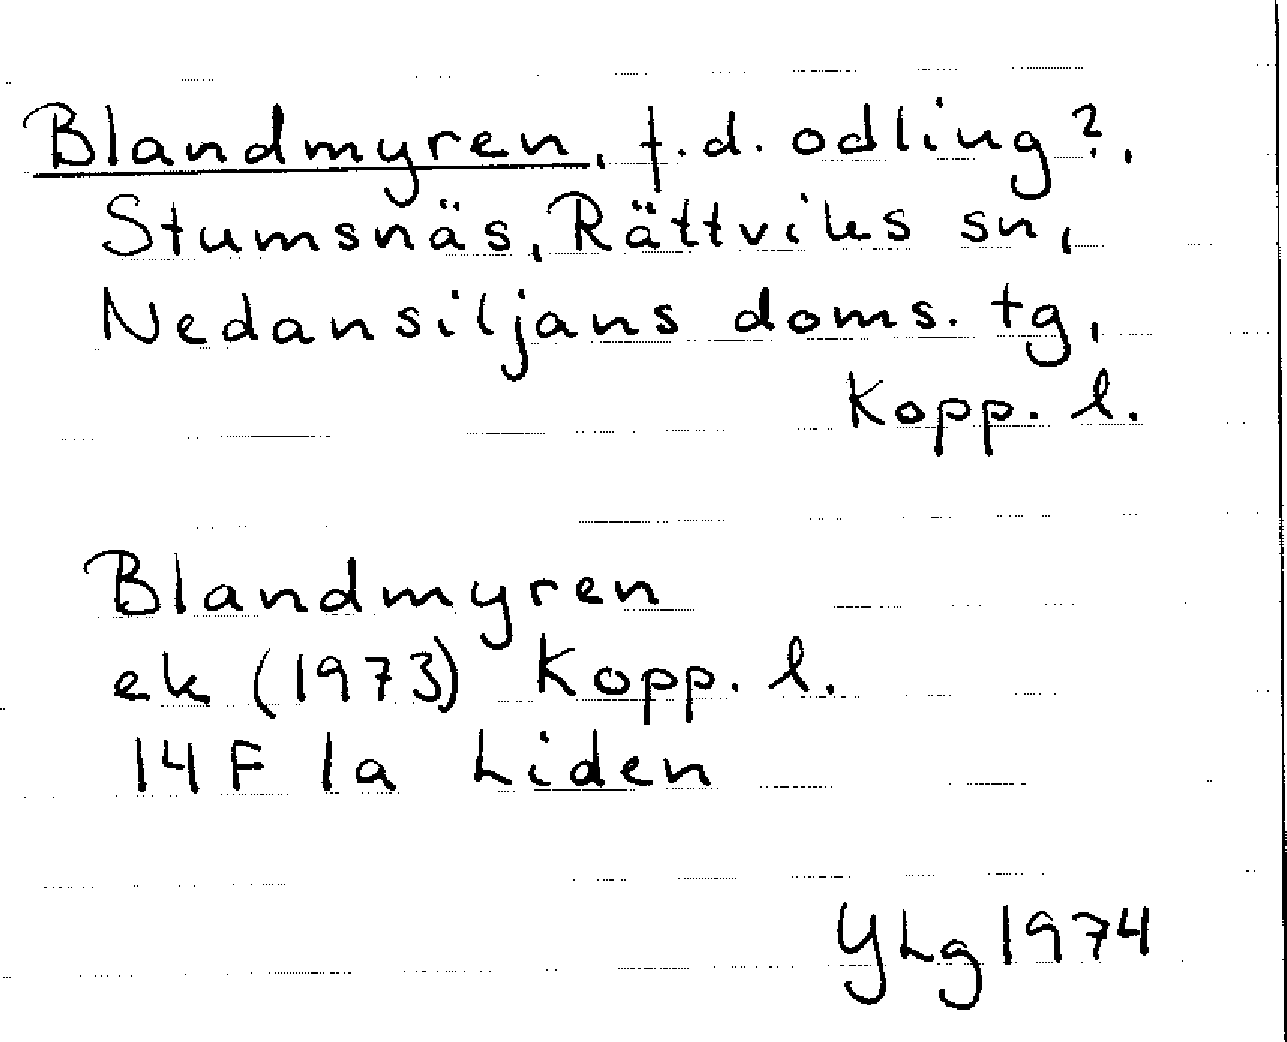 Blandmyren, f.d. odling?,
Stumsnäs, Rättviks sn,
Nedansiljans doms. tg,
Kopp. l.
Blandmyren
ek (1973) Kopp. l.
14F 1a Liden
YLg 1974